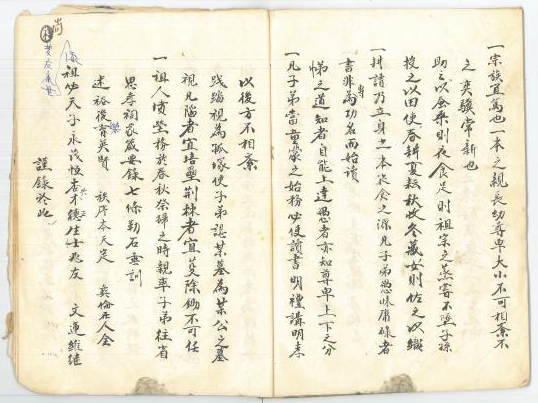 一宗族宜篤也一本之親長幼尊卑大小不可相紊不
之英駿常新也
助之以金粟則衣食足則祖宗之蒸嘗不墜子孫
投之以田使春耕夏耘秋收冬藏女則佐之以織
一耕讀乃立身之本衣食之源凡子弟愚昧庸碌者
書非專為功名而始讀
悌之道知者自能上達愚者亦知尊卑上下之分
一凡子弟當童蒙之始務必使讀書明禮講明孝
以後方不相紊
踐踏視為孤塚使子弟認某墓為某公之墓
視凡陷者宜培壘荆棘者宜芟除鋤不可任
一祖人墳塋務於春秋祭掃之時親率子弟往省
思孝祠家箴要錄七條勒石垂訓
述裕後育英賢 秩序本天定 彝倫在人全
祖必天子永茂恒 才聰生士兆友 文運維繼
謹錄於此